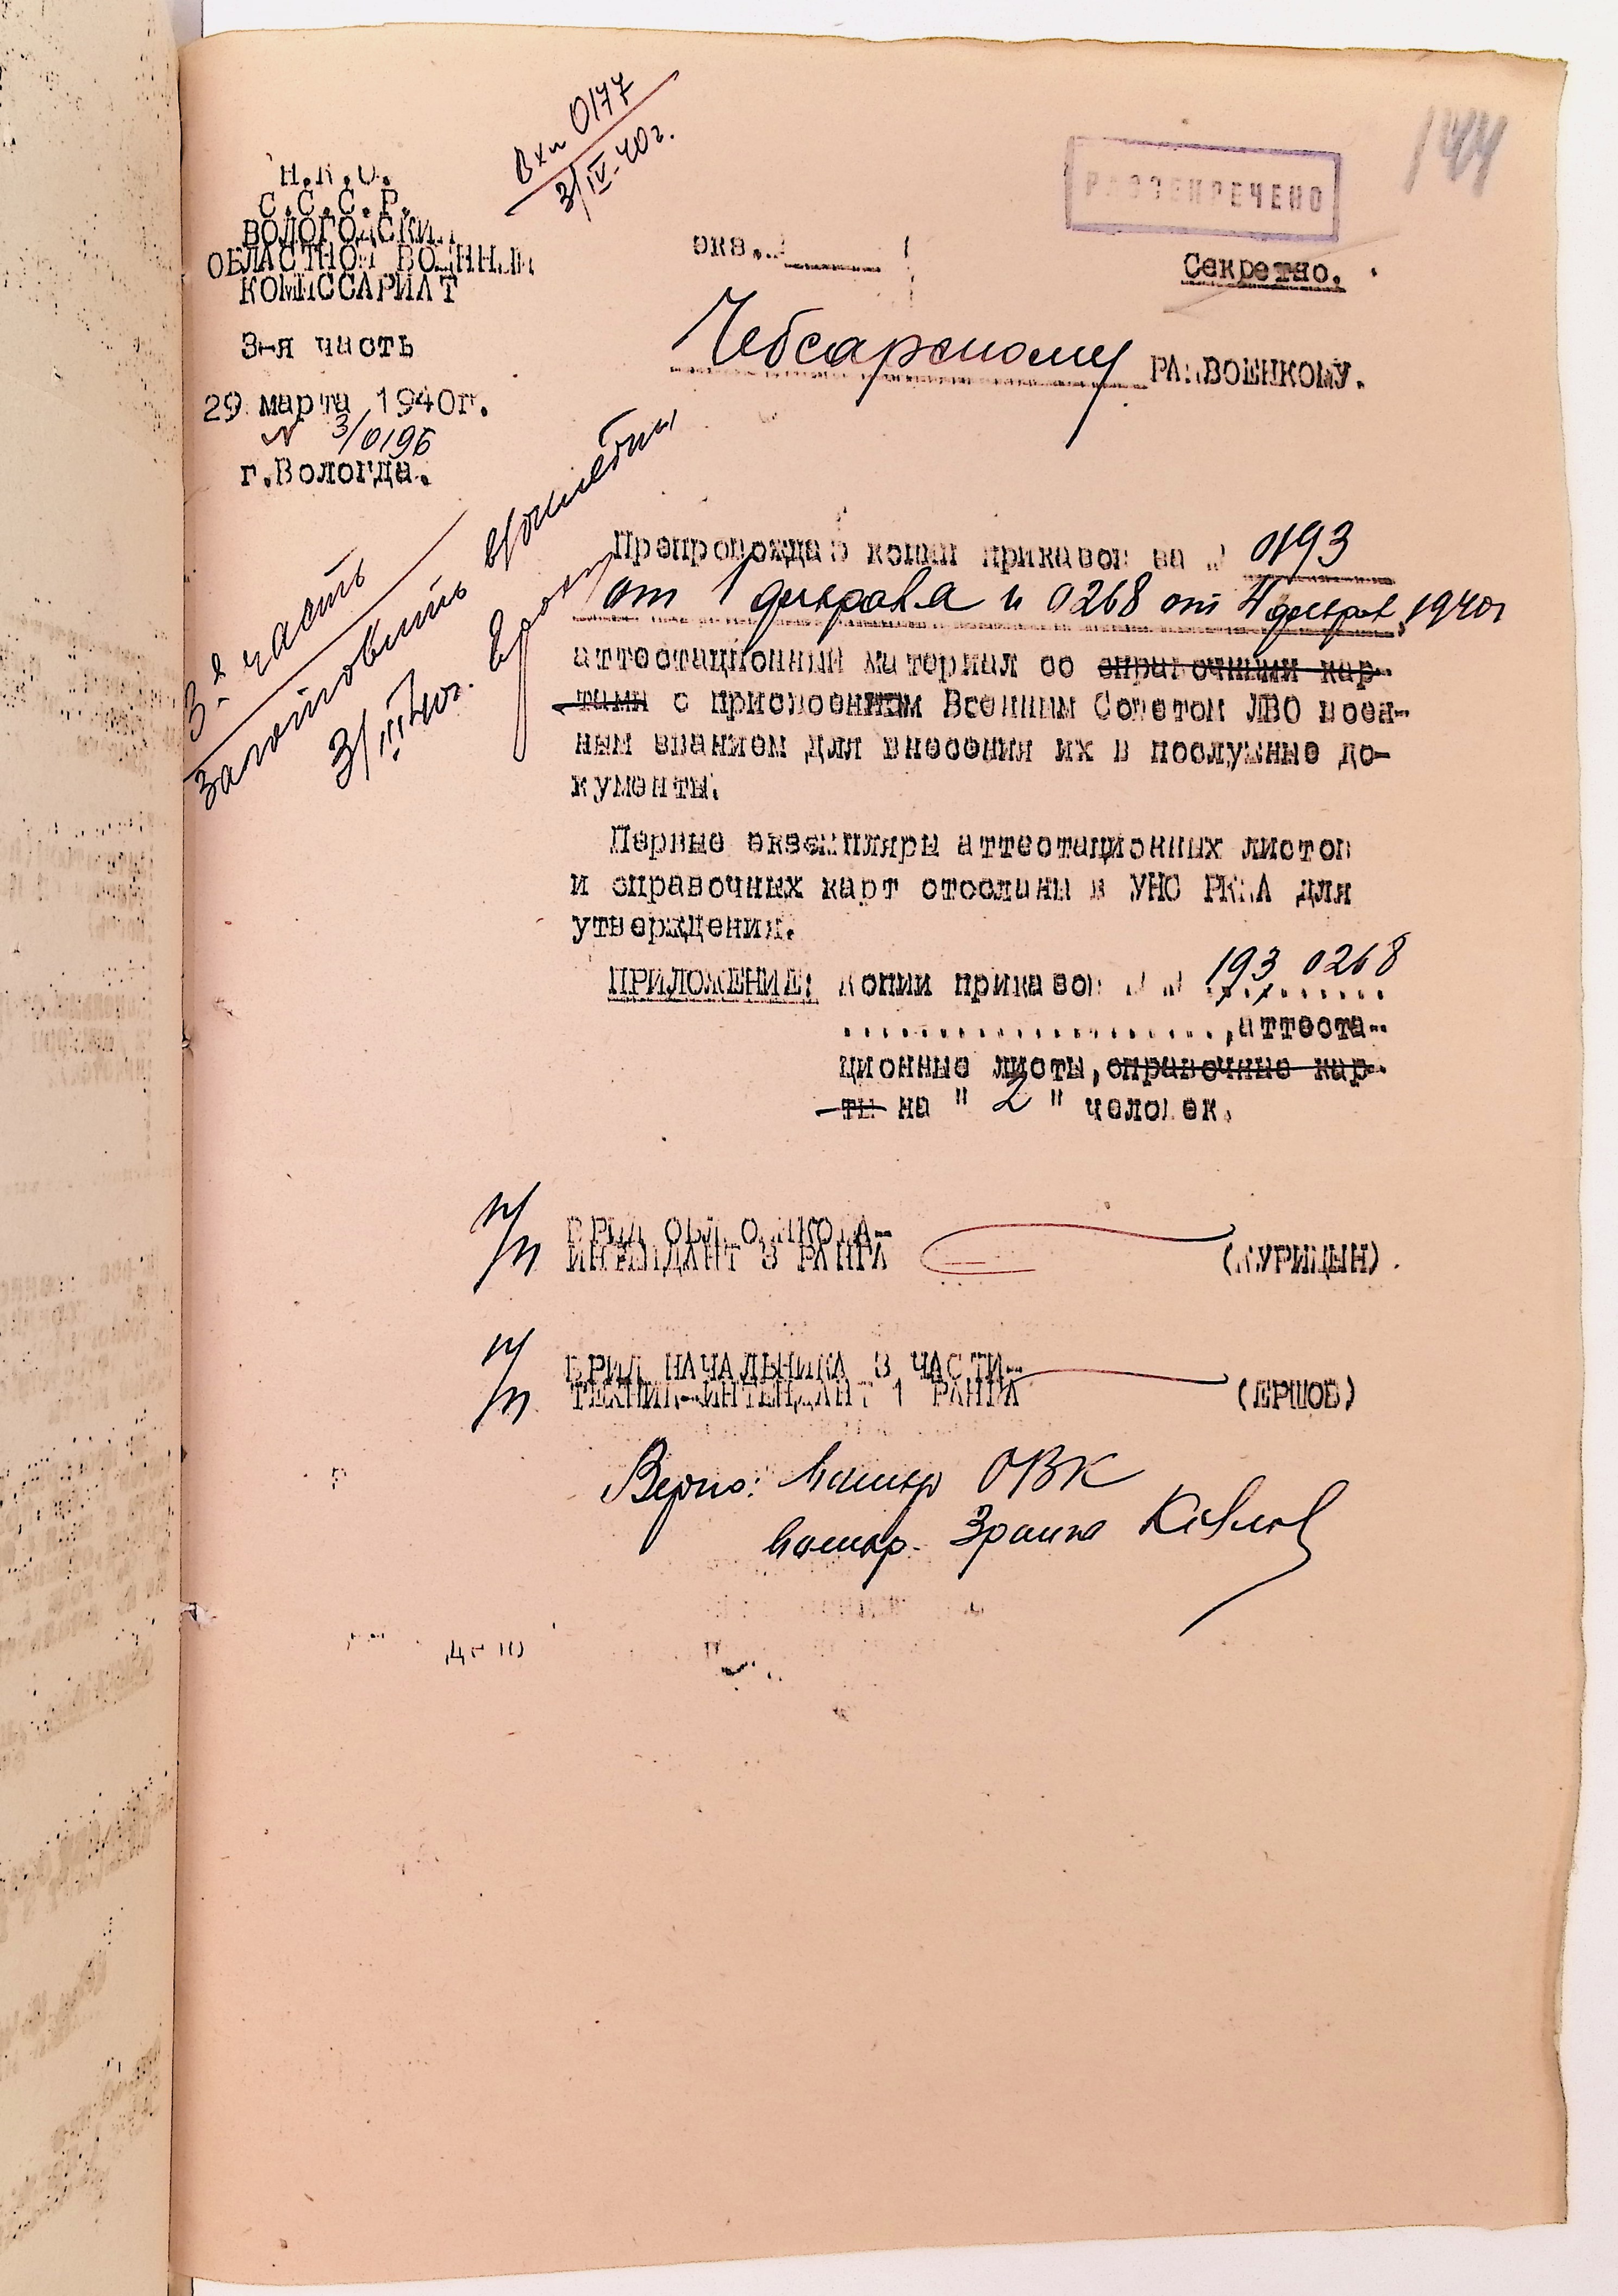 144
Вхн 0177
3/IV-40г.
РАССЕКРЕЧЕНО
Н.К.О.
С.С.С.Р.
ВОЛОГОДСКИЙ
ОБЛАСТНОЙ ВОЕННЫЙ
КОМИССАРИАТ
3-я часть
29 марта 1940г.
№ 3/0196
г.Вологда.
экз.
Секретно.
Чебсарскому РАЙВОЕНКОМУ.
3-я часть
3/III 40г.
Препровождаю копии приказов за № 0193
от 1 февраля и 0268 от 4 феврал, 1940г
аттестационный материал со справочными кар-
тами с присвоенным Военным Советом ЛВО воен-
ным званием для внесения их в послужные до-
кументы.
Первые экземпляры аттестационных листов
и справочных карт отосланы в УНС РККА для
утверждения.
ПРИЛОЖЕНИЕ: Копии приказов № № 193 0268
....................,аттеста-
ционные листы, справочные кар-
ты на " 2 " человек.
п/п ВРИД ОБЛВОЕНКОМА-
ИНТЕНДАНТ 3 РАНГА (КУРИЦЫН).
п/п ВРИД НАЧАЛЬНИКА 3 ЧАСТИ-
ТЕХНИК-ИНТЕНДАНТ 1 РАНГА (ЕРШОВ)
Верно: ОВК